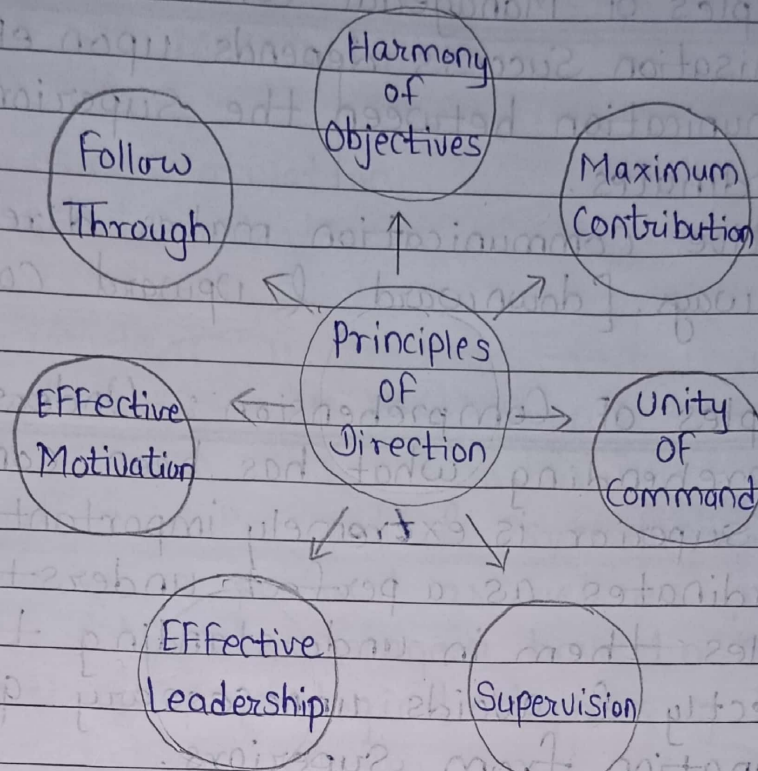 Harmony
of
Objectives
Follow
Through
Maximum
Contribution
Principles
OF
Direction
EFFective
Motivation
Unity
OF
Command
EFFective
Leadership
Supervision